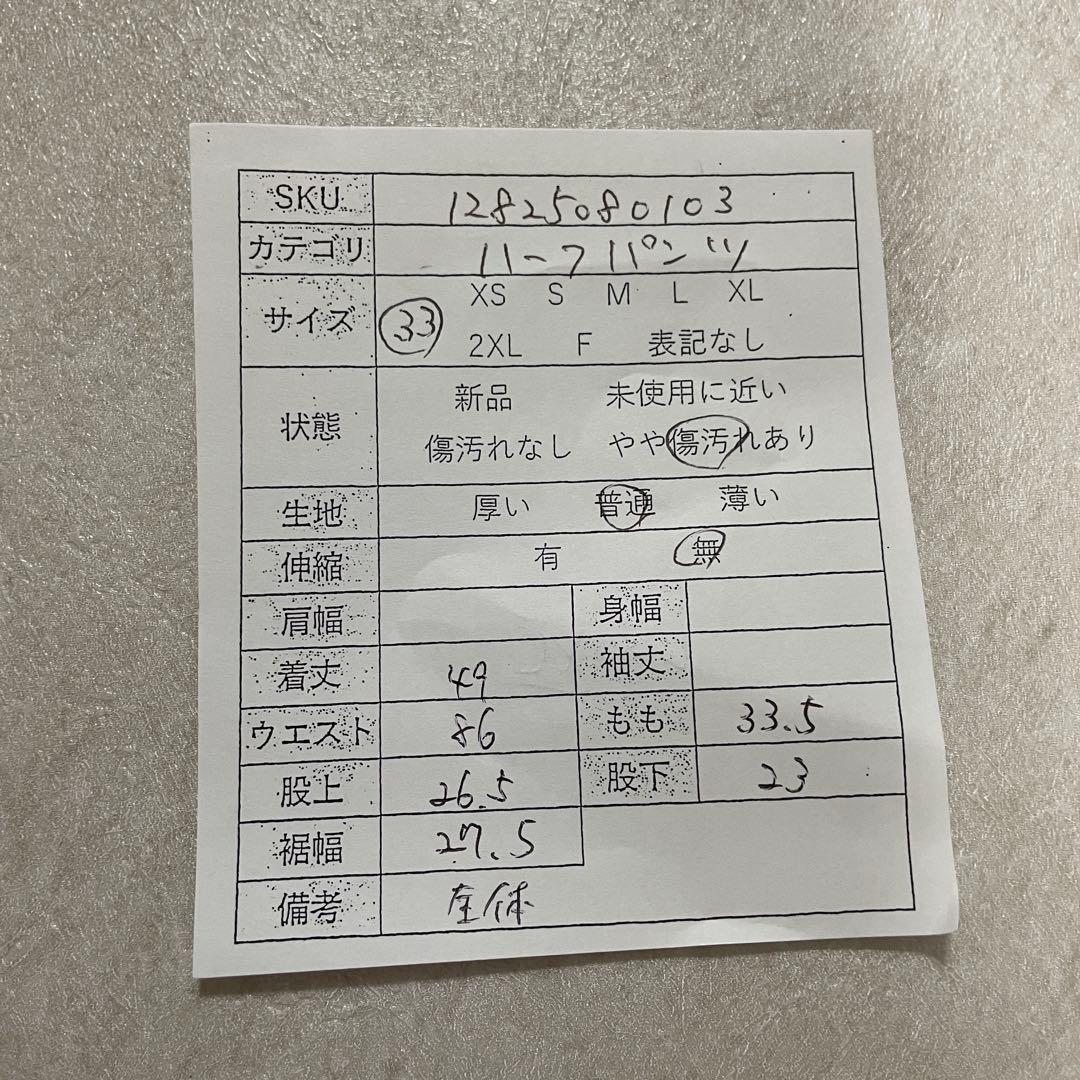 SKU 12825080103
カテゴリ ハーフパンツ
サイズ 33 XS S M L XL
2XL F 表記なし
状態 新品 未使用に近い
傷汚れなし やや傷汚れあり
生地 厚い 普通 薄い
伸縮 有 無
肩幅 身幅
着丈 49 袖丈
ウエスト 86 もも 33.5
股上 26.5 股下 23
裾幅 27.5
備考 全体